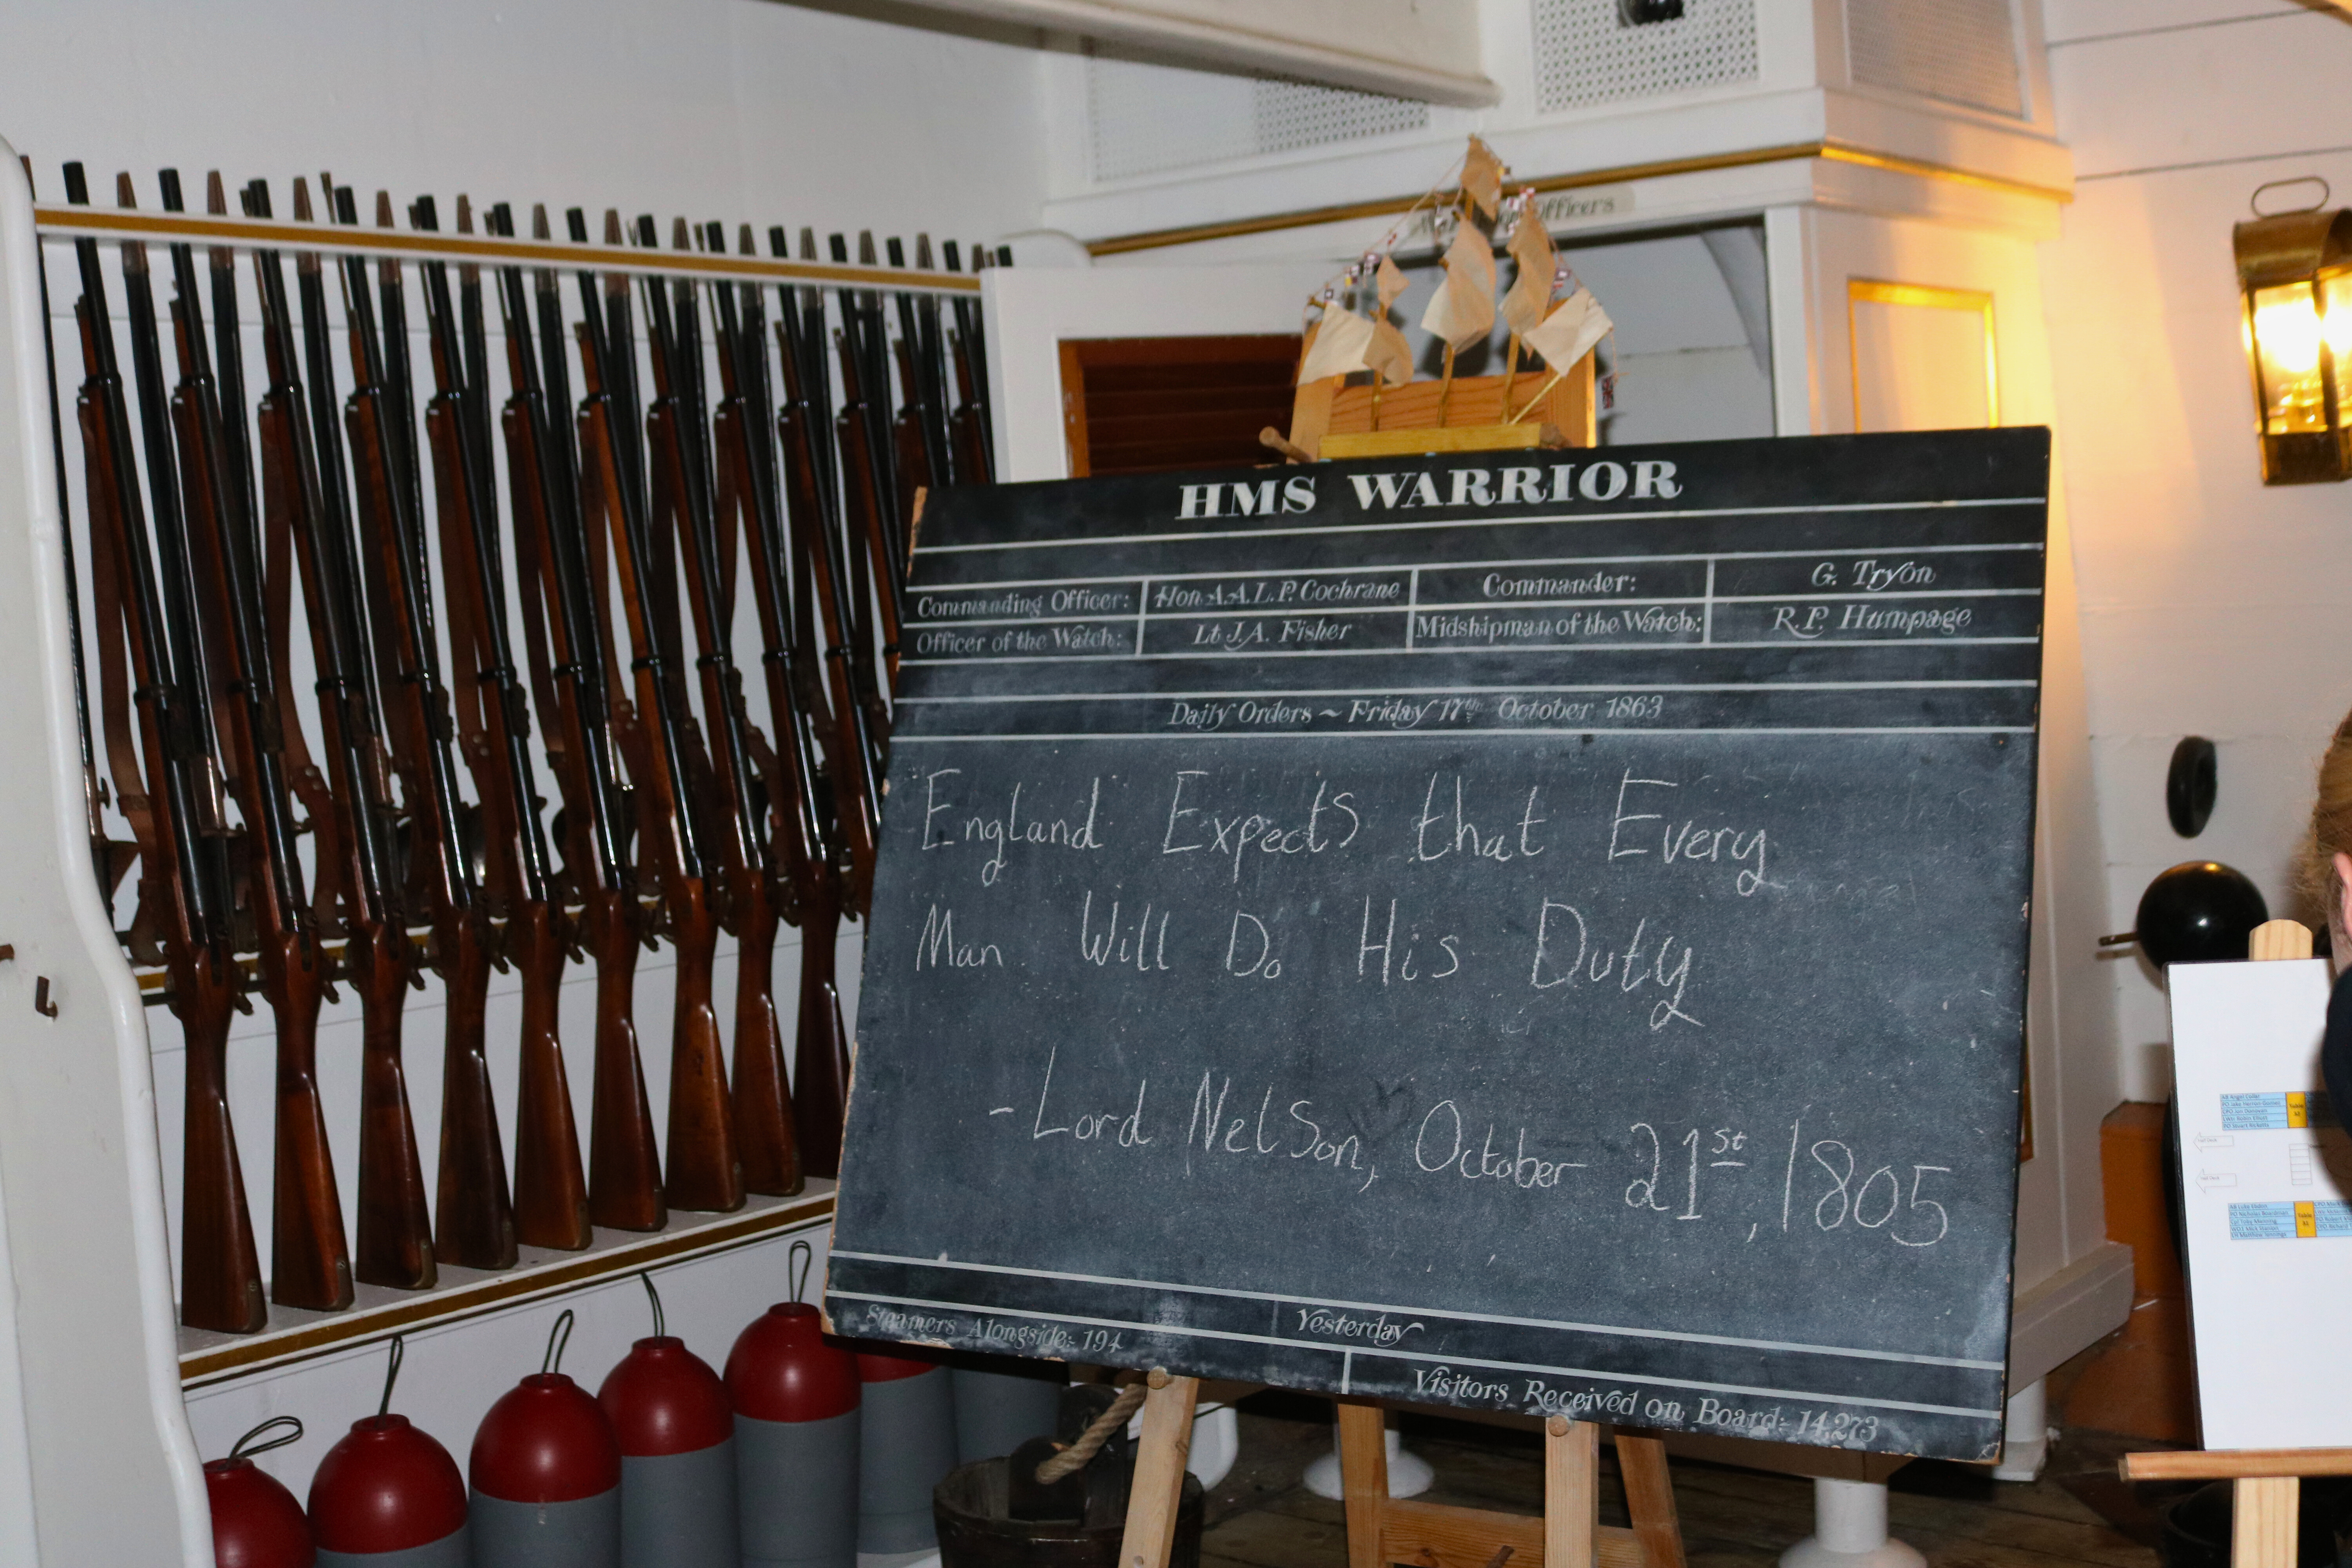 Officers
HMS WARRIOR
Commanding Officer: Hon A.A.L.P. Cochrane Commander: G. Tryon
Officer of the Watch: Lt J.A. Fisher Midshipman of the Watch: R.P. Humpage
Daily Orders ~ Friday 17th October 1863
England Expects that Every
Man Will Do His Duty
- Lord Nelson, October 21st, 1805
Yesterday
Steamers Alongside: 194 Visitors Received on Board: 14,273